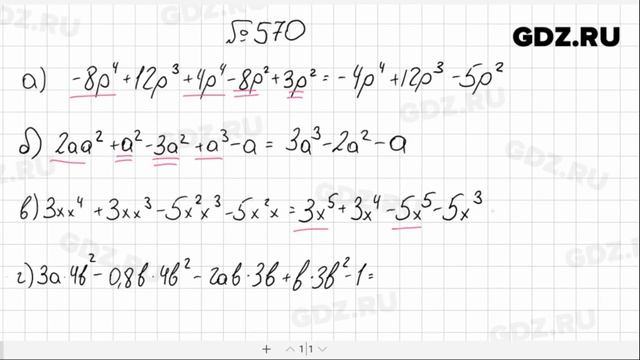 №570
GDZ.RU
а) -8p⁴+12p³+4p⁴-8p²+3p²=-4p⁴+12p³-5p²
б) 2aa²+a²-3a²+a³-a=3a³-2a²-a
в) 3xx⁴+3xx³-5x²x³-5x²x=3x⁵+3x⁴-5x⁵-5x³
г) 3a·4b²-0,8b·4b²-2ab·3b+b·3b²-1=
+ 1|1